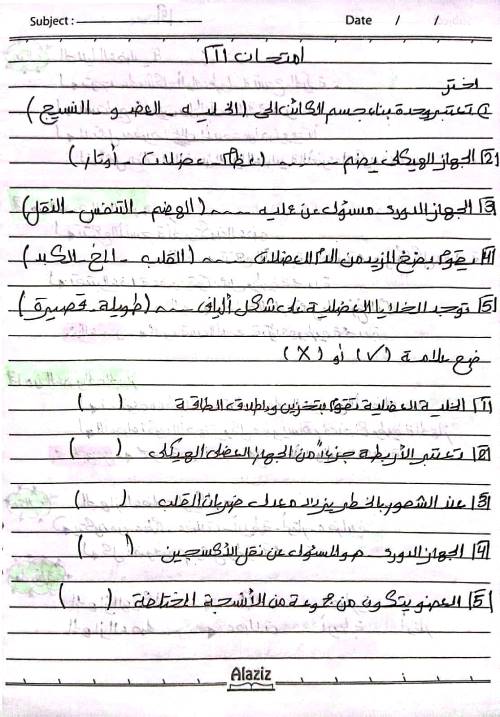 Subject : Date / /
امتحان [1]
اختر
① تعتبر وحدة بناء جسم الكائن الحى (الخلية - العضو - النسيج)
[2] الجهاز الهيكلى يضم ---- (عظام - عضلات - أوتار)
[3] الجهاز الدورى مسئول عن عملية ---- (الهضم - التنفس - النقل)
[4] يقوم بضخ المزيد من الدم للعضلات (القلب - المخ - الكبد)
[5] توجد الخلايا العضلية على شكل ألياف --- (طويلة - قصيرة)
ضع علامة (√) أو (X)
[1] الخلية العضلية تقوم بتخزين وإطلاق الطاقة ( )
[2] تعتبر الأربطة جزءاً من الجهاز العضلى الهيكلى ( )
[3] عند الشعور بالخطر يزداد معدل ضربات القلب ( )
[4] الجهاز الدورى هو المسئول عن نقل الأكسجين ( )
[5] العضو يتكون من مجموعة من الأنسجة المختلفة ( )
Alaziz